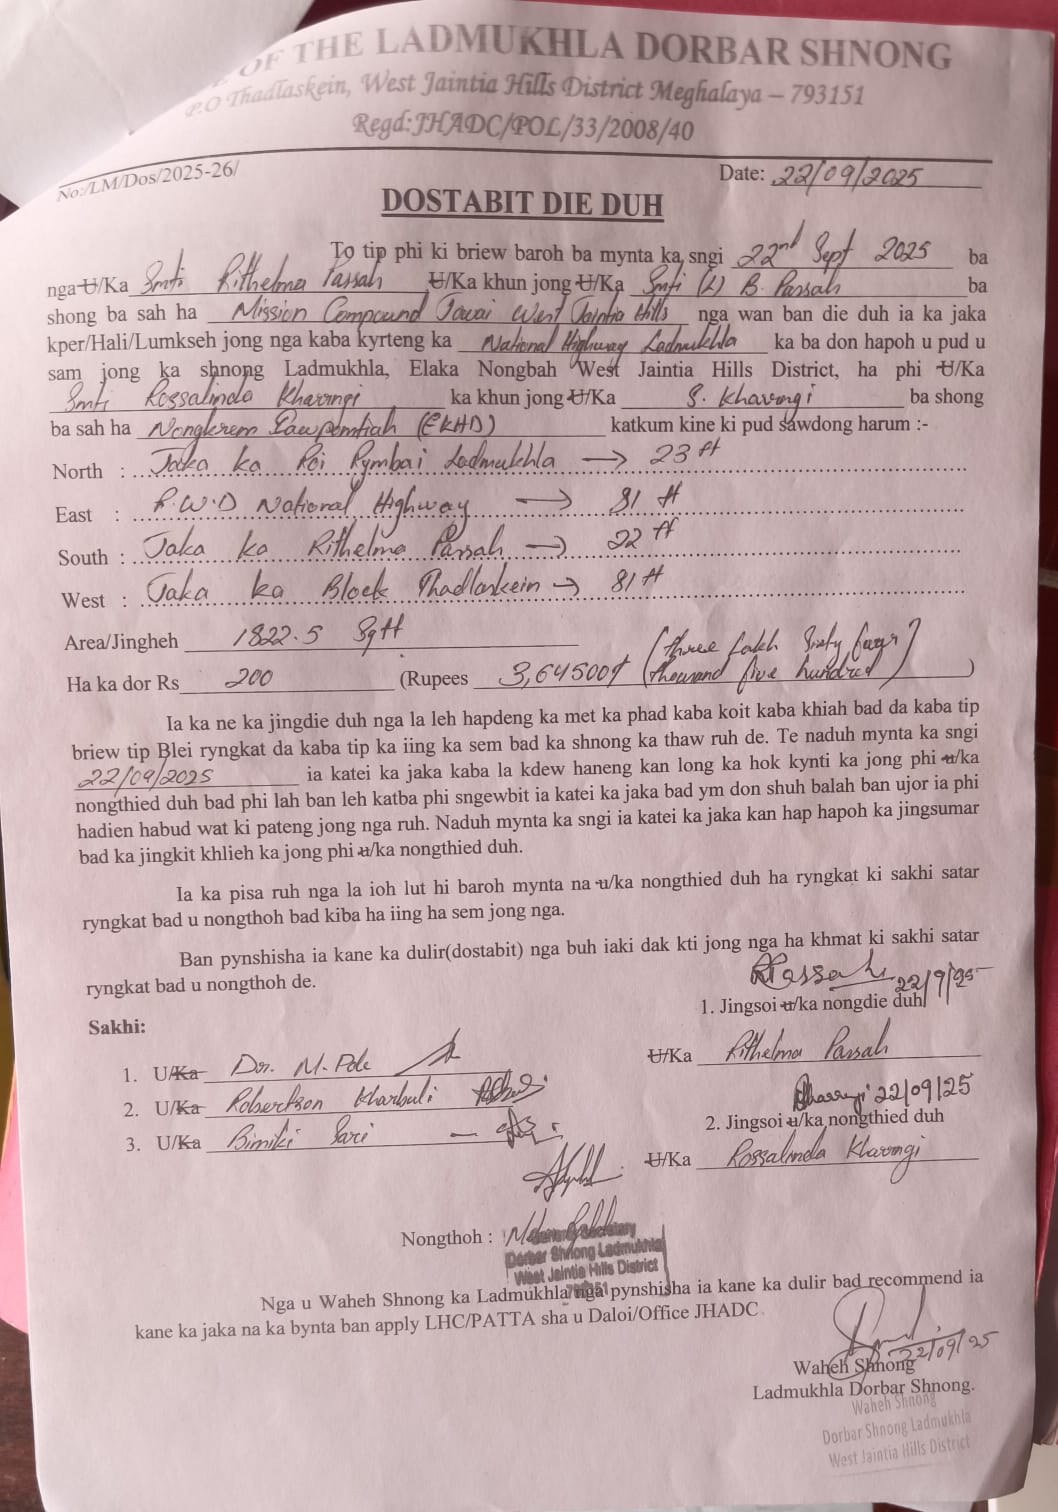 OF THE LADMUKHLA DORBAR SHNONG
P.O Thadlaskein, West Jaintia Hills District Meghalaya – 793151
Regd:JHADC/POL/33/2008/40
No:/LM/Dos/2025-26/
Date: 22/09/2025
DOSTABIT DIE DUH
To tip phi ki briew baroh ba mynta ka sngi 22nd Sept 2025 ba
nga U/Ka Smti Rithelma Passah U/Ka khun jong U/Ka Smti (L) B. Passah ba
shong ba sah ha Mission Compound Jowai West Jaintia Hills nga wan ban die duh ia ka jaka
kper/Hali/Lumkseh jong nga kaba kyrteng ka National Highway Ladmukhla ka ba don hapoh u pud u
sam jong ka shnong Ladmukhla, Elaka Nongbah West Jaintia Hills District, ha phi U/Ka
Smti Rossalinda Kharongi ka khun jong U/Ka S. Kharongi ba shong
ba sah ha Nongkrem (EKHD) katkum kine ki pud sawdong harum :-
North : Jaka ka Roi Rymbai Ladmukhla → 23 ft
East : P.W.D National Highway → 81 ft
South : Jaka ka Rithelma Passah → 22 ft
West : Jaka ka Block Thadlaskein → 81 ft
Area/Jingheh 1822.5 Sqft
Ha ka dor Rs 200 (Rupees 3,64500/ (three lakh Sixty four thousand five hundred) )
Ia ka ne ka jingdie duh nga la leh hapdeng ka met ka phad kaba koit kaba khiah bad da kaba tip
briew tip Blei ryngkat da kaba tip ka iing ka sem bad ka shnong ka thaw ruh de. Te naduh mynta ka sngi
22/09/2025 ia katei ka jaka kaba la kdew haneng kan long ka hok kynti ka jong phi u/ka
nongthied duh bad phi lah ban leh katba phi sngewbit ia katei ka jaka bad ym don shuh balah ban ujor ia phi
hadien habud wat ki pateng jong nga ruh. Naduh mynta ka sngi ia katei ka jaka kan hap hapoh ka jingsumar
bad ka jingkit khlieh ka jong phi u/ka nongthied duh.
Ia ka pisa ruh nga la ioh lut hi baroh mynta na u/ka nongthied duh ha ryngkat ki sakhi satar
ryngkat bad u nongthoh bad kiba ha iing ha sem jong nga.
Ban pynshisha ia kane ka dulir(dostabit) nga buh iaki dak kti jong nga ha khmat ki sakhi satar
ryngkat bad u nongthoh de.
RPassah 22/9/25
1. Jingsoi u/ka nongdie duh
Sakhi:
U/Ka Rithelma Passah
1. U/Ka Dor. M. Pde
2. U/Ka Robertson Kharbuli
22/09/25
2. Jingsoi u/ka nongthied duh
3. U/Ka Bimiki Sari
U/Ka Rossalinda Kharongi
Nongthoh :
Secretary
Dorbar Shnong Ladmukhla
West Jaintia Hills District
Nga u Waheh Shnong ka Ladmukhla nga pynshisha ia kane ka dulir bad recommend ia
kane ka jaka na ka bynta ban apply LHC/PATTA sha u Daloi/Office JHADC
22/09/25
Waheh Shnong
Ladmukhla Dorbar Shnong.
Waheh Shnong
Dorbar Shnong Ladmukhla
West Jaintia Hills District